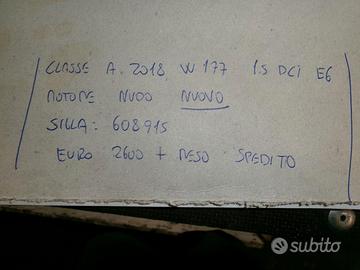 CLASSE A 2018 W177 1.5 DCI E6
MOTORE NUDO NUOVO
SILLA: 608915
EURO 2600 + RESO SPEDITO
subito